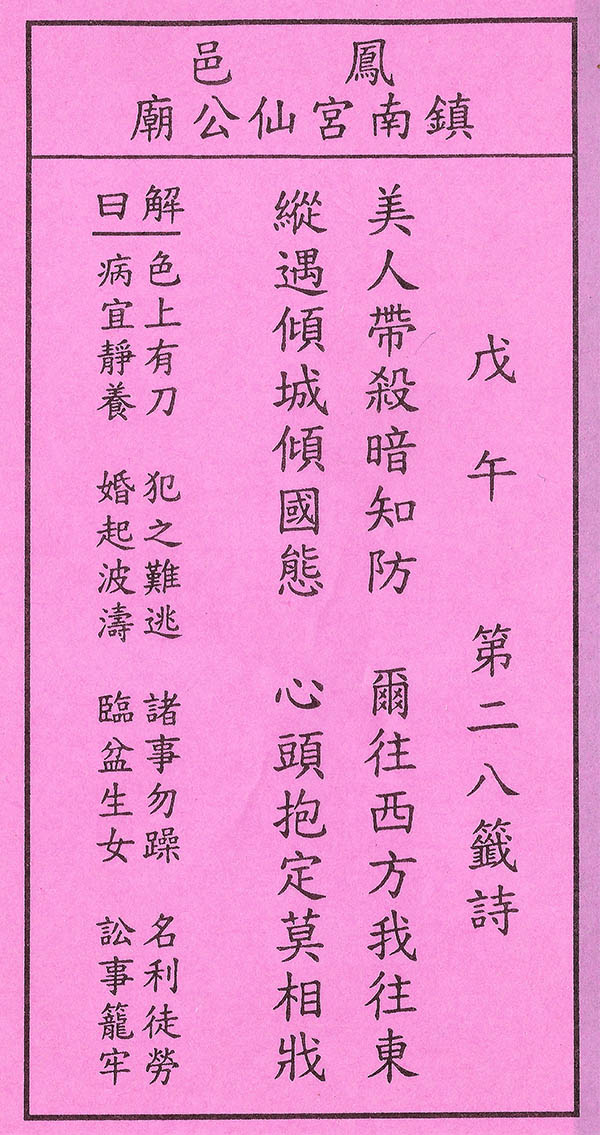 鳳邑
鎮南宮仙公廟
戊午 第二八籤詩
美人帶殺暗知防 爾往西方我往東
縱遇傾城傾國態 心頭抱定莫相戕
解曰
色上有刀 犯之難逃 諸事勿躁 名利徒勞
病宜靜養 婚起波濤 臨盆生女 訟事籠牢